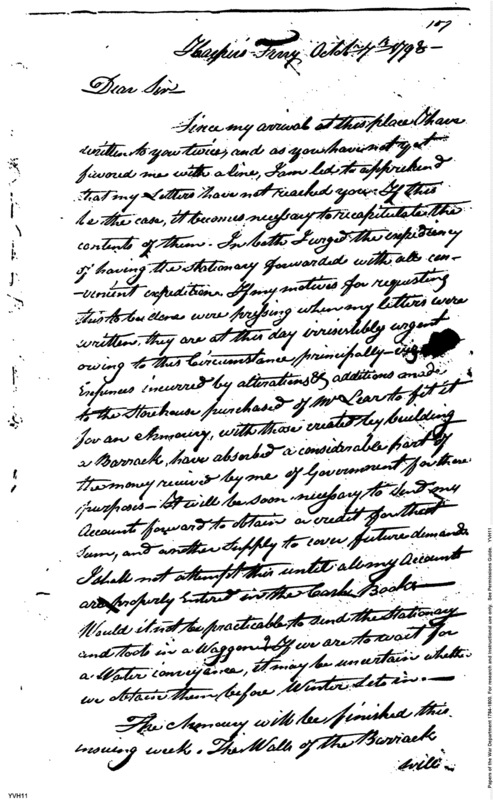 107
Harper's Ferry Octbr 4th 1798 -
Dear Sir
Since my arrival at this place I have
written to you twice, and as you have not yet
favored me with a line, I am led to apprehend
that my Letters have not reached you. If this
be the case, it becomes necessary to recapitulate the
contents of them. In both I urged the expediency
of having the Stationary forwarded with all con-
-venient expedition. If my motives for requesting
this to be done were pressing when my letters were
written, they are at this day irresistibly urgent
owing to this Circumstance principally -
Expences incurred by alterations & additions made
to the Storehouse purchased of Mr Lear to fit it
for an Armoury, with those created by building
a Barrack, have absorbed a considerable part of
the money received by me of Government for these
purposes - It will be soon necessary to send my
Account forward to obtain a credit for that
Sum, and another Supply to cover future demands
I shall not attempt this until all my Accounts
are properly Entered in the Cash Books -
Would it not be practicable to send the Stationary
and tools in a Waggon? If we are to wait for
a Water conveyance, it may be uncertain whether
we obtain them before Winter Sets in. -
The Armoury will be finished this
insuing week. The Walls of the Barrack
will
YVH11
Papers of the War Department 1784-1800. For research and instructional use only. See Permissions Guide. YVH11